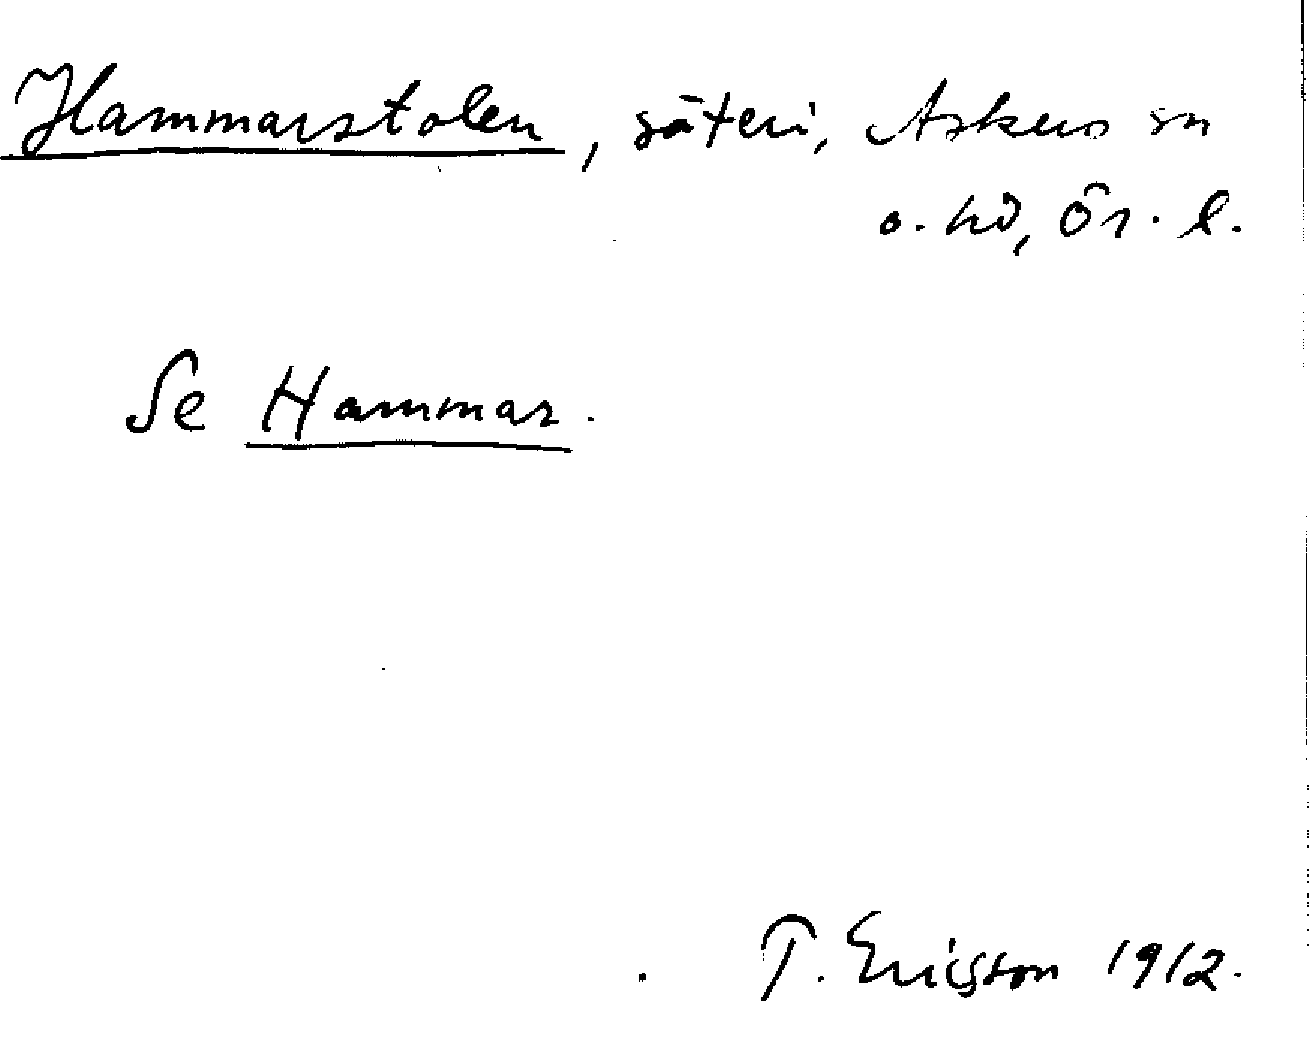 Hammarstolen, säteri, Askers sn
o. hd, Ör. l.
Se Hammar.
T. Ericsson 1912.